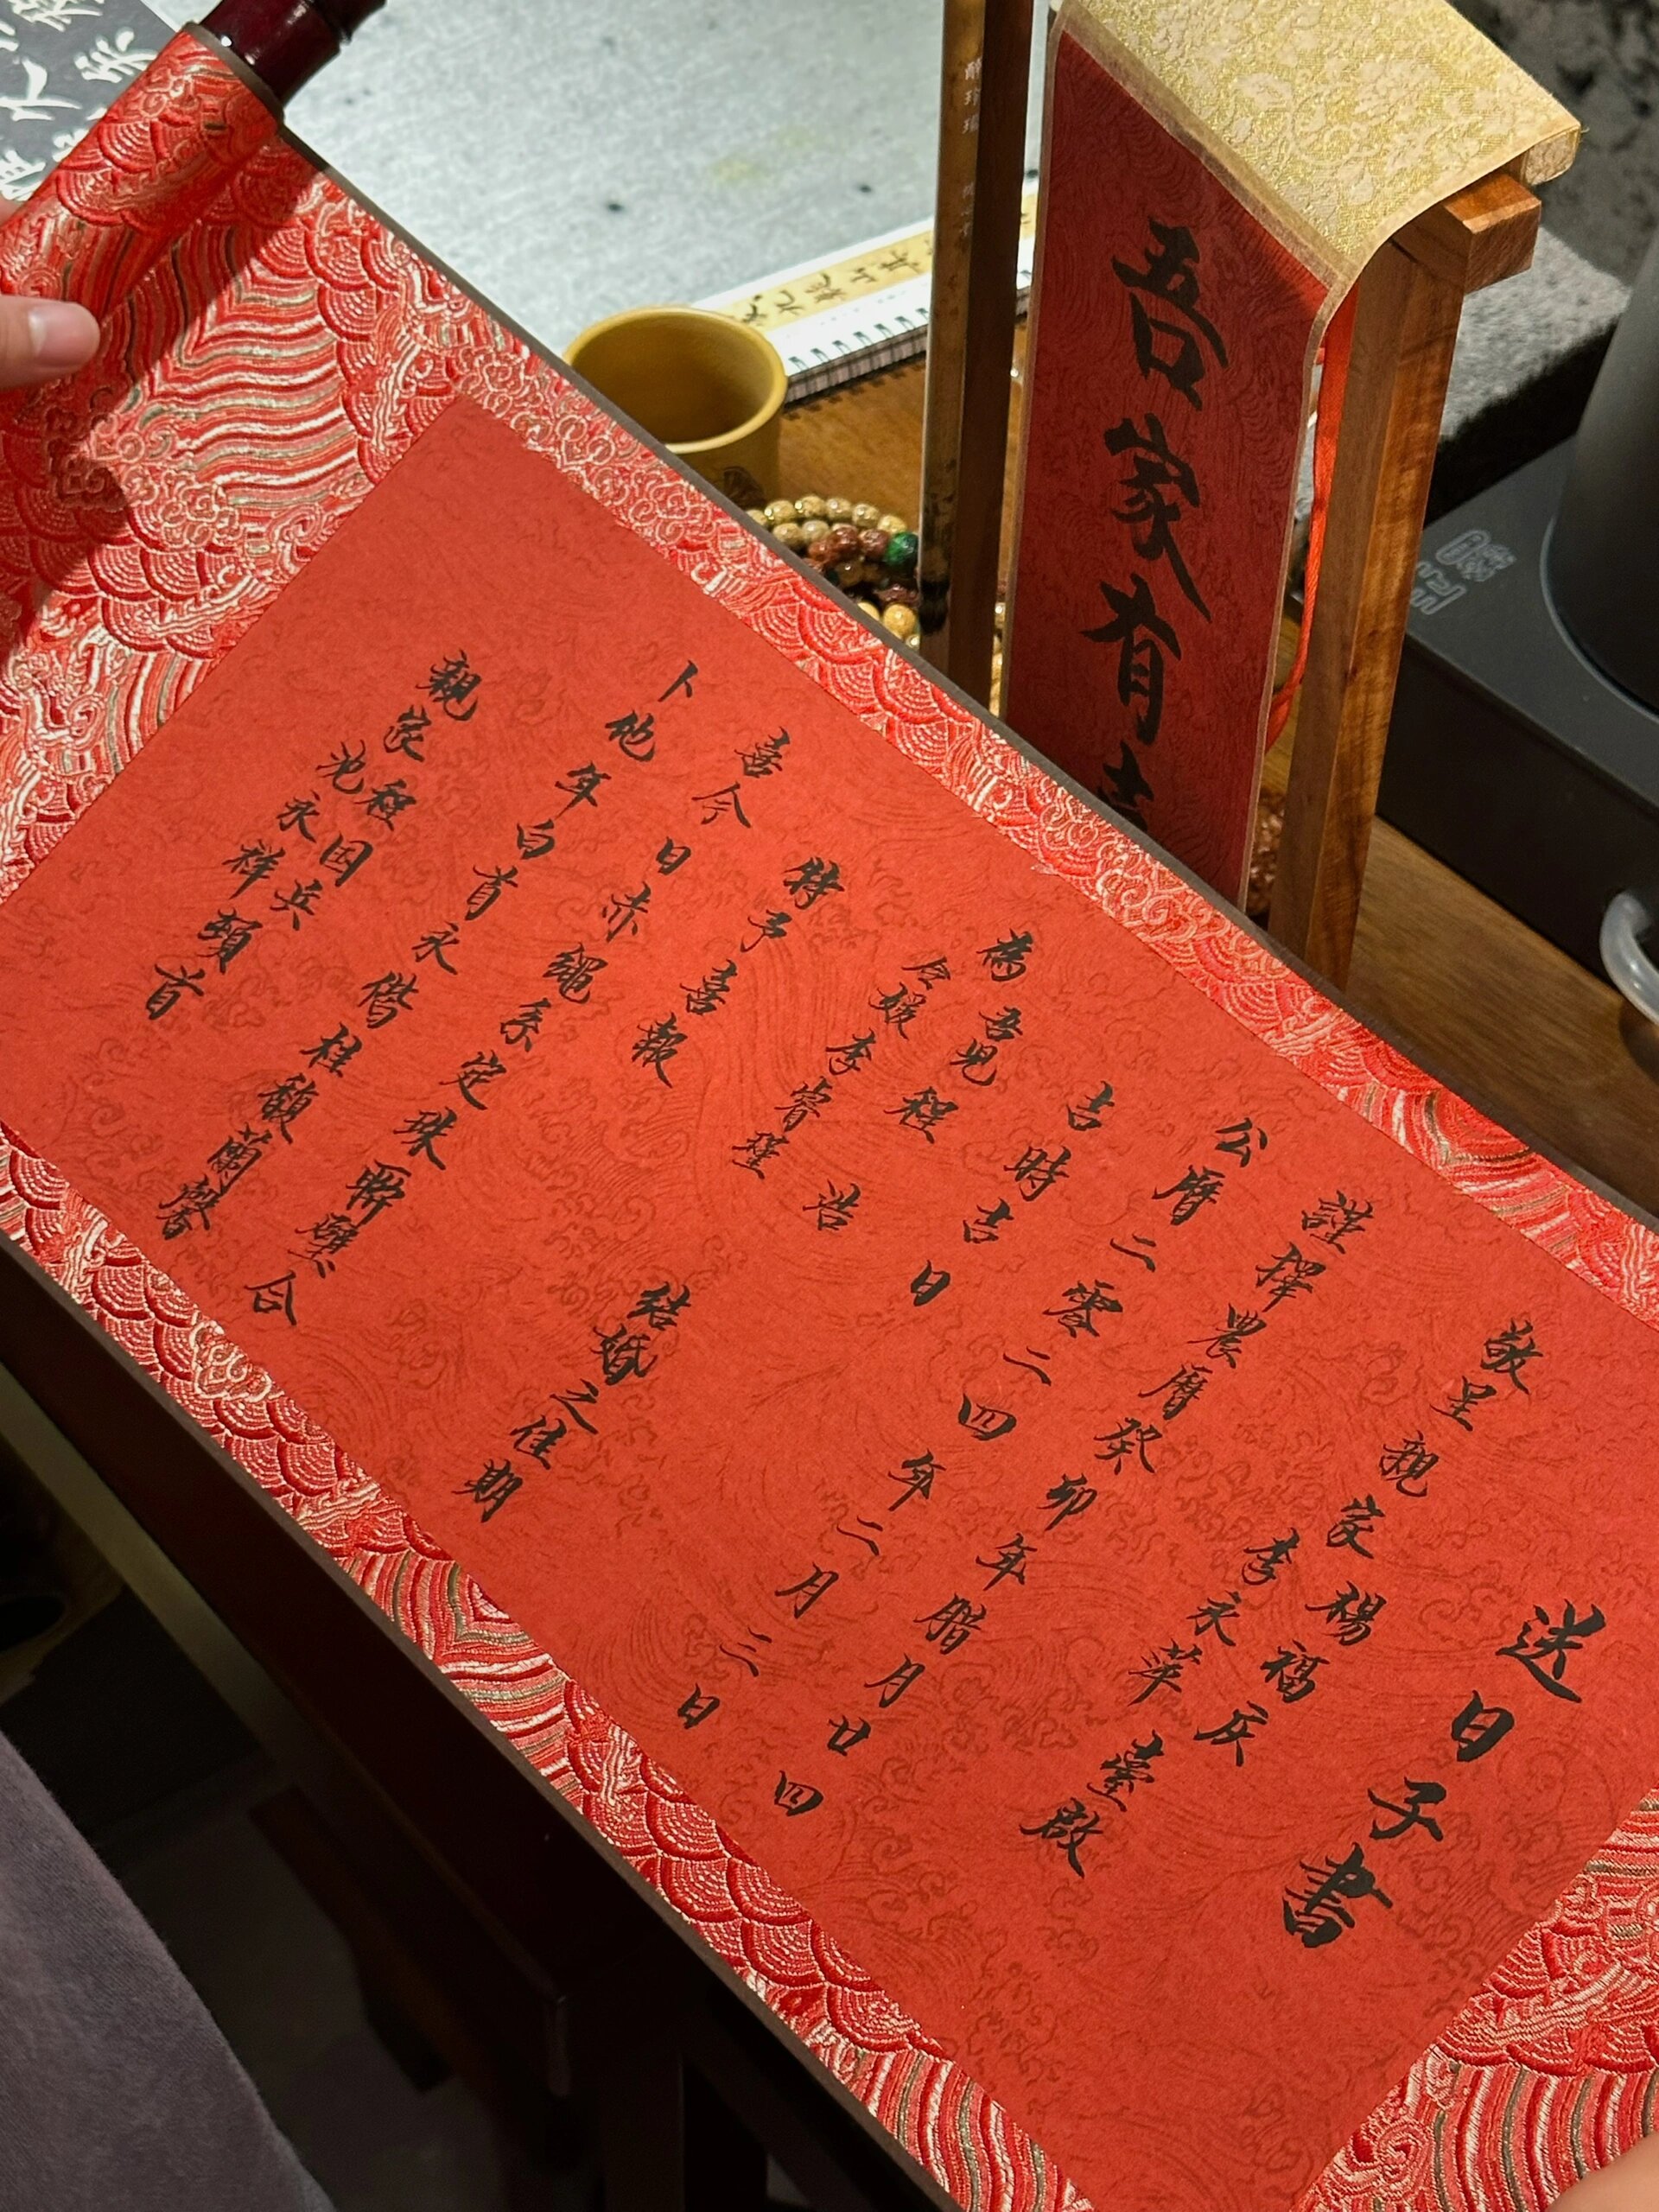 送日子書
敬呈親家楊福庆
李永萍 臺啟
謹擇農曆癸卯年腊月廿四
公曆二零二四年二月三日
吉時吉日
為吾児程 浩
令媛李睿瑾 結婚之佳期
特予喜報
喜今日赤繩系定珠聯璧合
卜他年白首永偕桂馥蘭馨
親家程国兵
池永祥頓首
吾家有